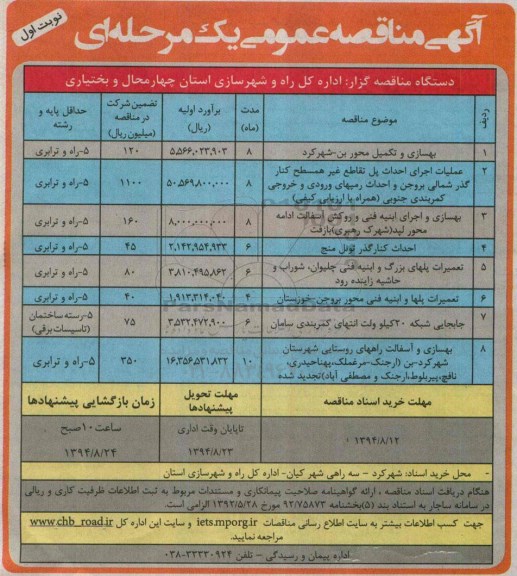 نوبت اول
آگهی مناقصه عمومی یک مرحله‌ای
دستگاه مناقصه گزار: اداره کل راه و شهرسازی استان چهارمحال و بختیاری
ردیف موضوع مناقصه مدت (ماه) برآورد اولیه (ریال) تضمین شرکت در مناقصه (میلیون ریال) حداقل پایه و رشته
۱ بهسازی و تکمیل محور بن-شهرکرد ۸ ۵,۵۶۶,۰۲۳,۹۰۳ ۱۲۰ ۵-راه و ترابری
۲ عملیات اجرای احداث پل تقاطع غیر همسطح کنار
گذر شمالی بروجن و احداث رمپهای ورودی و خروجی
کمربندی جنوبی (همراه با ارزیابی کیفی) ۸ ۵۰,۵۶۹,۸۰۰,۰۰۰ ۱۱۰۰ ۵-راه و ترابری
۳ بهسازی و اجرای ابنیه فنی و روکش آسفالت ادامه
محور لبد(شهرک رهبری)بازفت ۸ ۸,۰۰۰,۰۰۰,۰۰۰ ۱۶۰ ۵-راه و ترابری
۴ احداث کنارگذر تونل منج ۶ ۲,۱۴۲,۹۵۴,۹۳۳ ۴۵ ۵-راه و ترابری
۵ تعمیرات پلهای بزرگ و ابنیه فنی چلیوان، شوراب و
حاشیه زاینده رود ۶ ۳,۸۱۰,۴۹۵,۸۶۲ ۸۰ ۵-راه و ترابری
۶ تعمیرات پلها و ابنیه فنی محور بروجن-خوزستان ۴ ۱,۹۱۳,۳۱۴,۰۴۰ ۴۰ ۵-راه و ترابری
۷ جابجایی شبکه ۲۰کیلو ولت انتهای کمربندی سامان ۶ ۳,۵۳۲,۴۷۲,۹۰۰ ۷۵ ۵-رسته ساختمان (تاسیسات برقی)
۸ بهسازی و آسفالت راههای روستایی شهرستان
شهرکرد-بن (ارجنک-مرغملک،پهناحیدری،
نافچ،پیربلوط،ارجنک و مصطفی آباد)تجدید شده ۱۰ ۱۶,۳۵۶,۵۳۱,۸۳۲ ۳۵۰ ۵-راه و ترابری
مهلت خرید اسناد مناقصه مهلت تحویل پیشنهادها زمان بازگشایی پیشنهادها
۱۳۹۴/۸/۱۲ تاپایان وقت اداری ۱۳۹۴/۸/۲۳ ساعت ۱۰صبح ۱۳۹۴/۸/۲۴
- محل خرید اسناد: شهرکرد - سه راهی شهر کیان- اداره کل راه و شهرسازی استان
هنگام دریافت اسناد مناقصه ، ارائه گواهینامه صلاحیت پیمانکاری و مستندات مربوط به ثبت اطلاعات ظرفیت کاری و ریالی
در سامانه ساجار به استناد بند (۵)بخشنامه ۹۲/۷۵۸۷۳ مورخ ۱۳۹۲/۵/۲۸ الزامی است.
جهت کسب اطلاعات بیشتر به سایت اطلاع رسانی مناقصات iets.mporg.ir و سایت این اداره کل www.chb_road.ir
مراجعه نمایید.
اداره پیمان و رسیدگی - تلفن ۳۲۲۳۰۹۲۴-۰۳۸
ParsNamadData